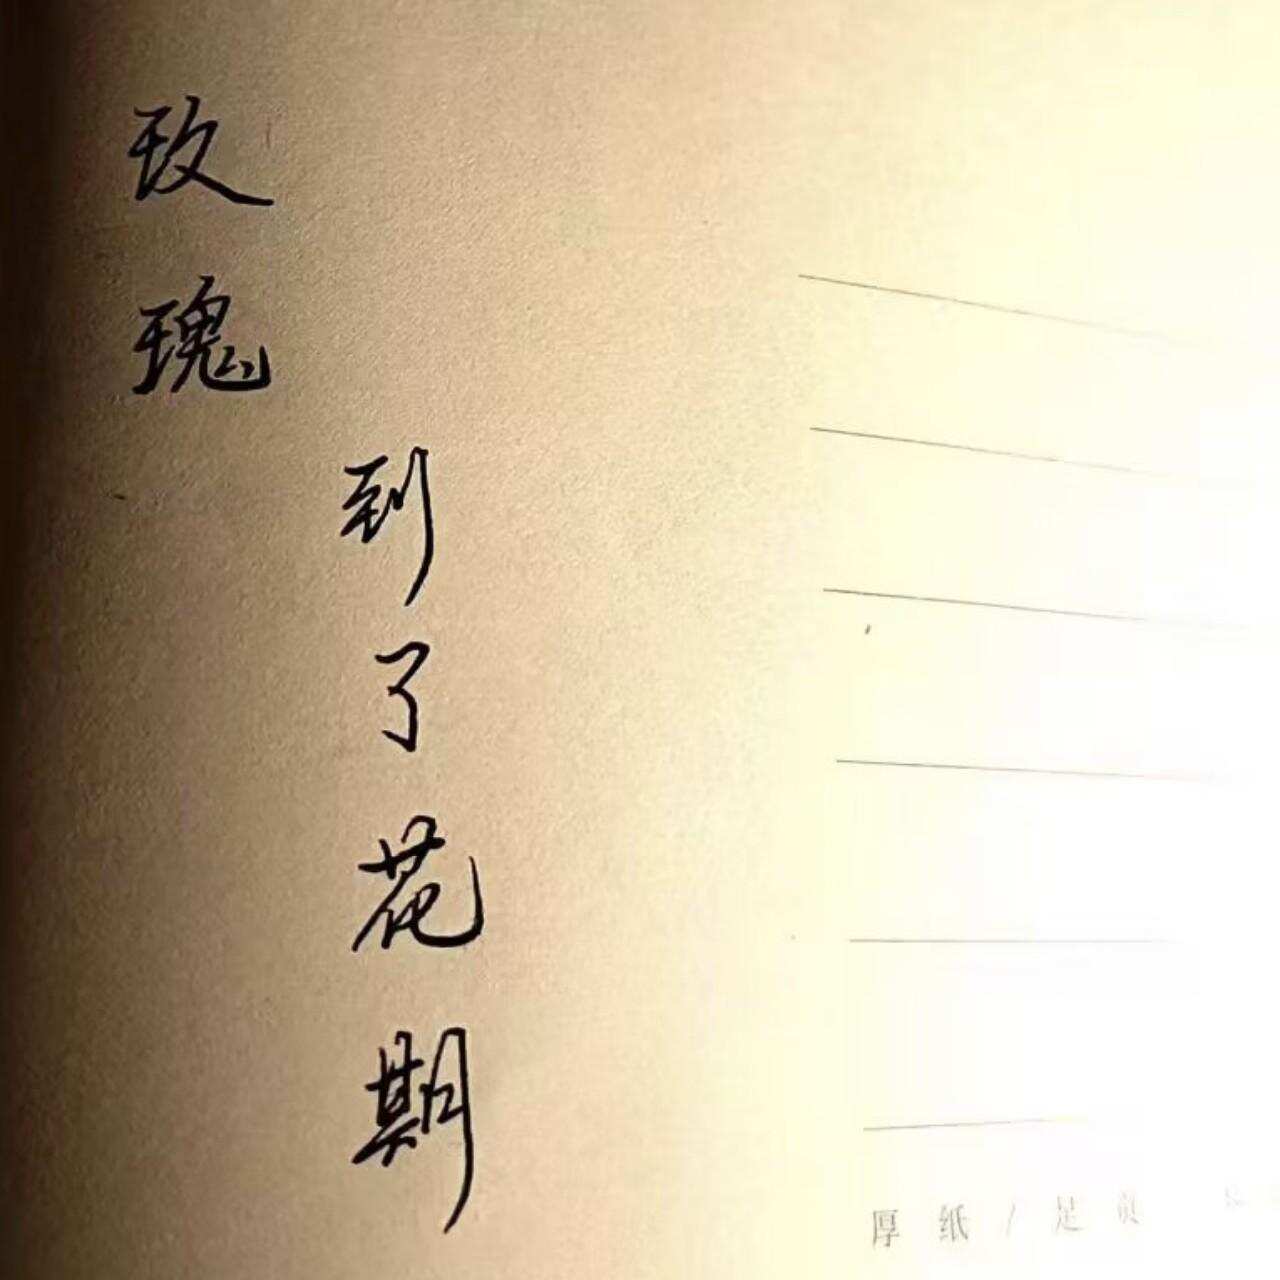 玫瑰
到了花期
厚纸/足页